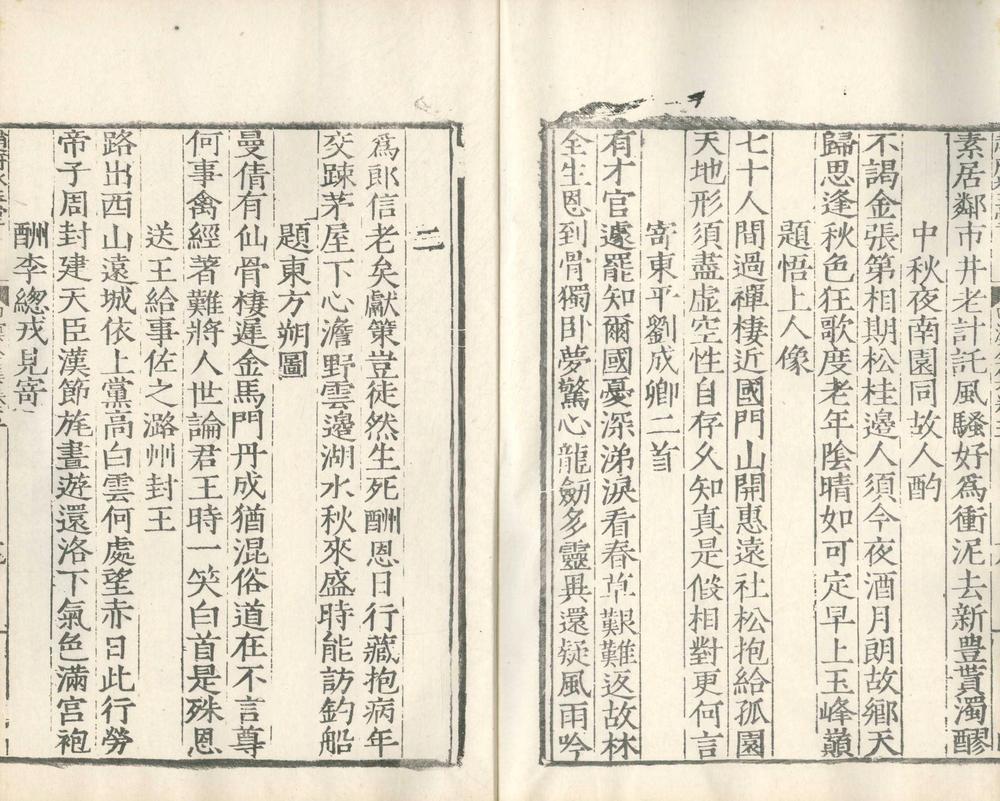 素居鄰市井老計託風騷好爲衝泥去新豊貰濁醪
中秋夜南園同故人酌
不謁金張第相期松桂邊人須今夜酒月朗故鄉天
歸思逢秋色狂歌度老年陰晴如可定早上玉峰巔
題悟上人像
七十人間過禪棲近國門山開惠遠社松抱給孤園
天地形須盡虛空性自存久知真是假相對更何言
寄東平劉成卿二首
有才官遽罷知爾國憂深涕淚看春草艱難返故林
全生恩到骨獨卧夢驚心龍劒多靈異還疑風雨吟
二
爲郎信老矣獻策豈徒然生死酬恩日行藏抱病年
交踈茅屋下心澹野雲邊湖水秋來盛時能訪釣船
題東方朔圖
曼倩有仙骨棲遲金馬門丹成猶混俗道在不言尊
何事禽經著難將人世論君王時一笑白首是殊恩
送王給事佐之潞州封王
路出西山遠城依上黨高白雲何處望赤日此行勞
帝子周封建天臣漢節旄晝遊還洛下氣色滿宮袍
酬李緫戎見寄